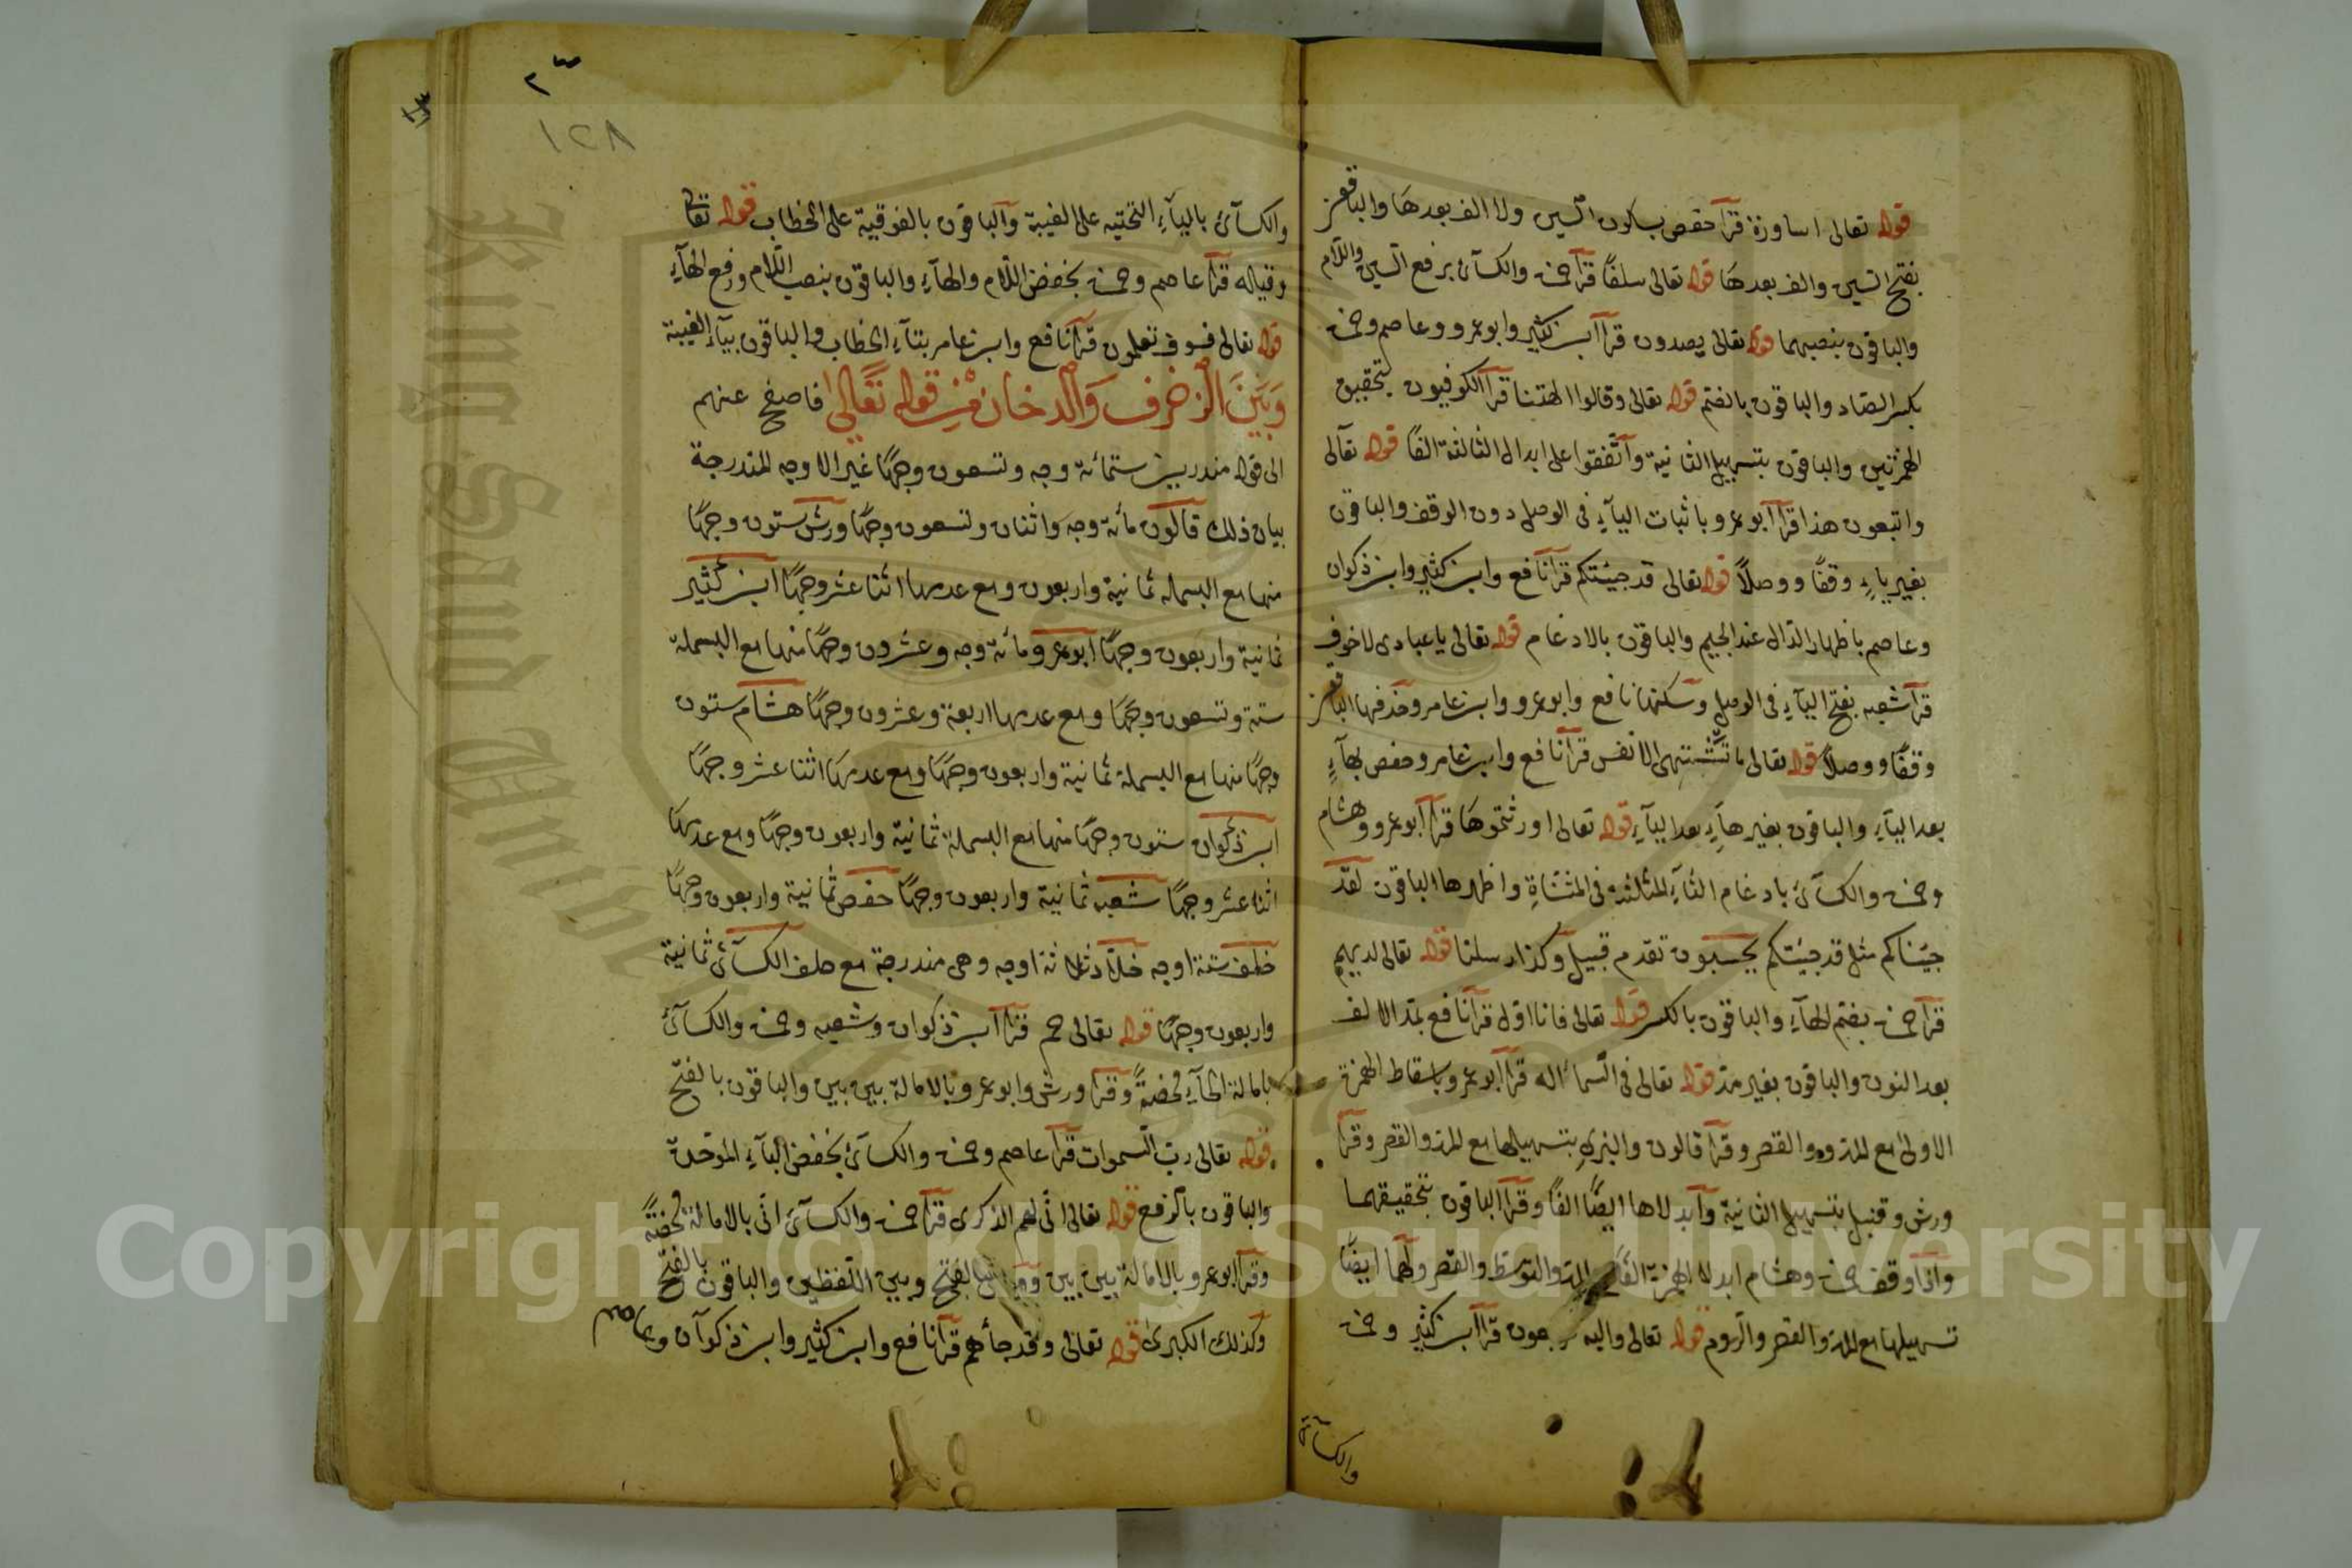 قوله تعالى اساورة قرأ حفص بسكون السين ولا الف بعدها والباقون
بفتح السين والف بعدها قوله تعالى سلفا قرأ حمزة والكسآئى برفع السين واللام
والباقون بنصبهما قوله تعالى يصدون قرأ ابن كثير وابو عمرو وعاصم وحمزة
بكسر الصاد والباقون بالضم قوله تعالى وقالوا الهتنا قرأ الكوفيون بتحقيق
الهمزتين والباقون بتسهيل الثانية واتفقوا على ابدال الثالثة الفا قوله تعالى
واتبعون هذا قرأ ابو عمرو باثبات اليآء فى الوصل دون الوقف والباقون
بغير ياء وقفا ووصلا قوله تعالى قد جيئتكم قرأ نافع وابن كثير وابن ذكوان
وعاصم باظهار الدال عند الجيم والباقون بالادغام قوله تعالى يا عبادى لا خوف
قرأ شعبه بفتح اليآء فى الوصل وسكنها نافع وابو عمرو وابن عامر وحذفها الباقون
وقفا ووصلا قوله تعالى ما تشتهى الانفس قرأ نافع وابن عامر وحفص بهآء
بعد اليآء والباقون بغير هآء بعد اليآء قوله تعالى اورثتموها قرأ ابو عمرو وهشام
وحمزة والكسآئى بادغام الثآء المثلثة فى المثناة واظهرها الباقون لقد
جيئناكم مثل قد جيئتكم يحسبون تقدم قبيل وكذا رسلنا قوله تعالى لديهم
قرأ حمزة بضم الهآء والباقون بالكسر قوله تعالى فانا اول قرأ نافع بمد الالف
بعد النون والباقون بغير مد قوله تعالى فى السمآء اله قرأ ابو عمرو باسقاط الهمزة
الاولى مع المد والقصر وقرأ قالون والبزى بتسهيلها مع المد والقصر وقرأ
ورش وقنبل بتسهيل الثانية وابدلاها ايضا الفا وقرأ الباقون بتحقيقهما
واذا وقف حمزة وهشام ابدلا الهمزة الفا مع المد والتوسط والقصر ولهما ايضا
تسهيلها مع المد والقصر والروم قوله تعالى واليه يرجعون قرأ ابن كثير وحمزة
والكسآئى
١٢٨
والكسآئى باليآء التحتيه على الغيبة والباقون بالفوقية على الخطاب قوله تعالى
وقيله قرأ عاصم وحمزة بخفض اللام والهآء والباقون بنصب اللام ورفع الهآء
قوله تعالى فسوف تعلمون قرأ نافع وابن عامر بتآء الخطاب والباقون بيآء الغيبة
وبين الزخرف والدخان من قوله تعالى فاصفح عنهم
الى قوله منذرين ستمائة وجه وتسعون وجها غير الاوجه المندرجة
بيان ذلك قالون مائة وجه واثنان وتسعون وجها ورش ستون وجها
منها مع البسملة ثمانية واربعون ومع عدمها اثنا عشر وجها ابن كثير
ثمانية واربعون وجها ابو عمرو مائة وجه وعشرون وجها منها مع البسملة
ستة وتسعون وجها ومع عدمها اربعة وعشرون وجها هشام ستون
وجها منها مع البسملة ثمانية واربعون وجها ومع عدمها اثنا عشر وجها
ابن ذكوان ستون وجها منها مع البسملة ثمانية واربعون وجها ومع عدمها
اثنا عشر وجها شعبه ثمانية واربعون وجها حفص ثمانية واربعون وجها
خلف ستة اوجه خلاد ثلاثة اوجه وهى مندرجة مع خلف الكسآئى ثمانية
واربعون وجها قوله تعالى حم قرأ ابن ذكوان وشعبه وحمزة والكسآئى
بامالة الحآء محضة وقرأ ورش وابو عمرو بالامالة بين بين والباقون بالفتح
قوله تعالى رب السموات قرأ عاصم وحمزة والكسآئى بخفض البآء الموحدة
والباقون بالرفع قوله تعالى انى لهم الذكرى قرأ حمزة والكسآئى انى بالامالة محضة
وقرأ ابو عمرو بالامالة بين بين وورش بالفتح وبين اللفظين والباقون بالفتح
وكذلك الكبرى قوله تعالى وقد جآءهم قرأ نافع وابن كثير وابن ذكوان وعاصم
King Saud University
Copyright © King Saud University